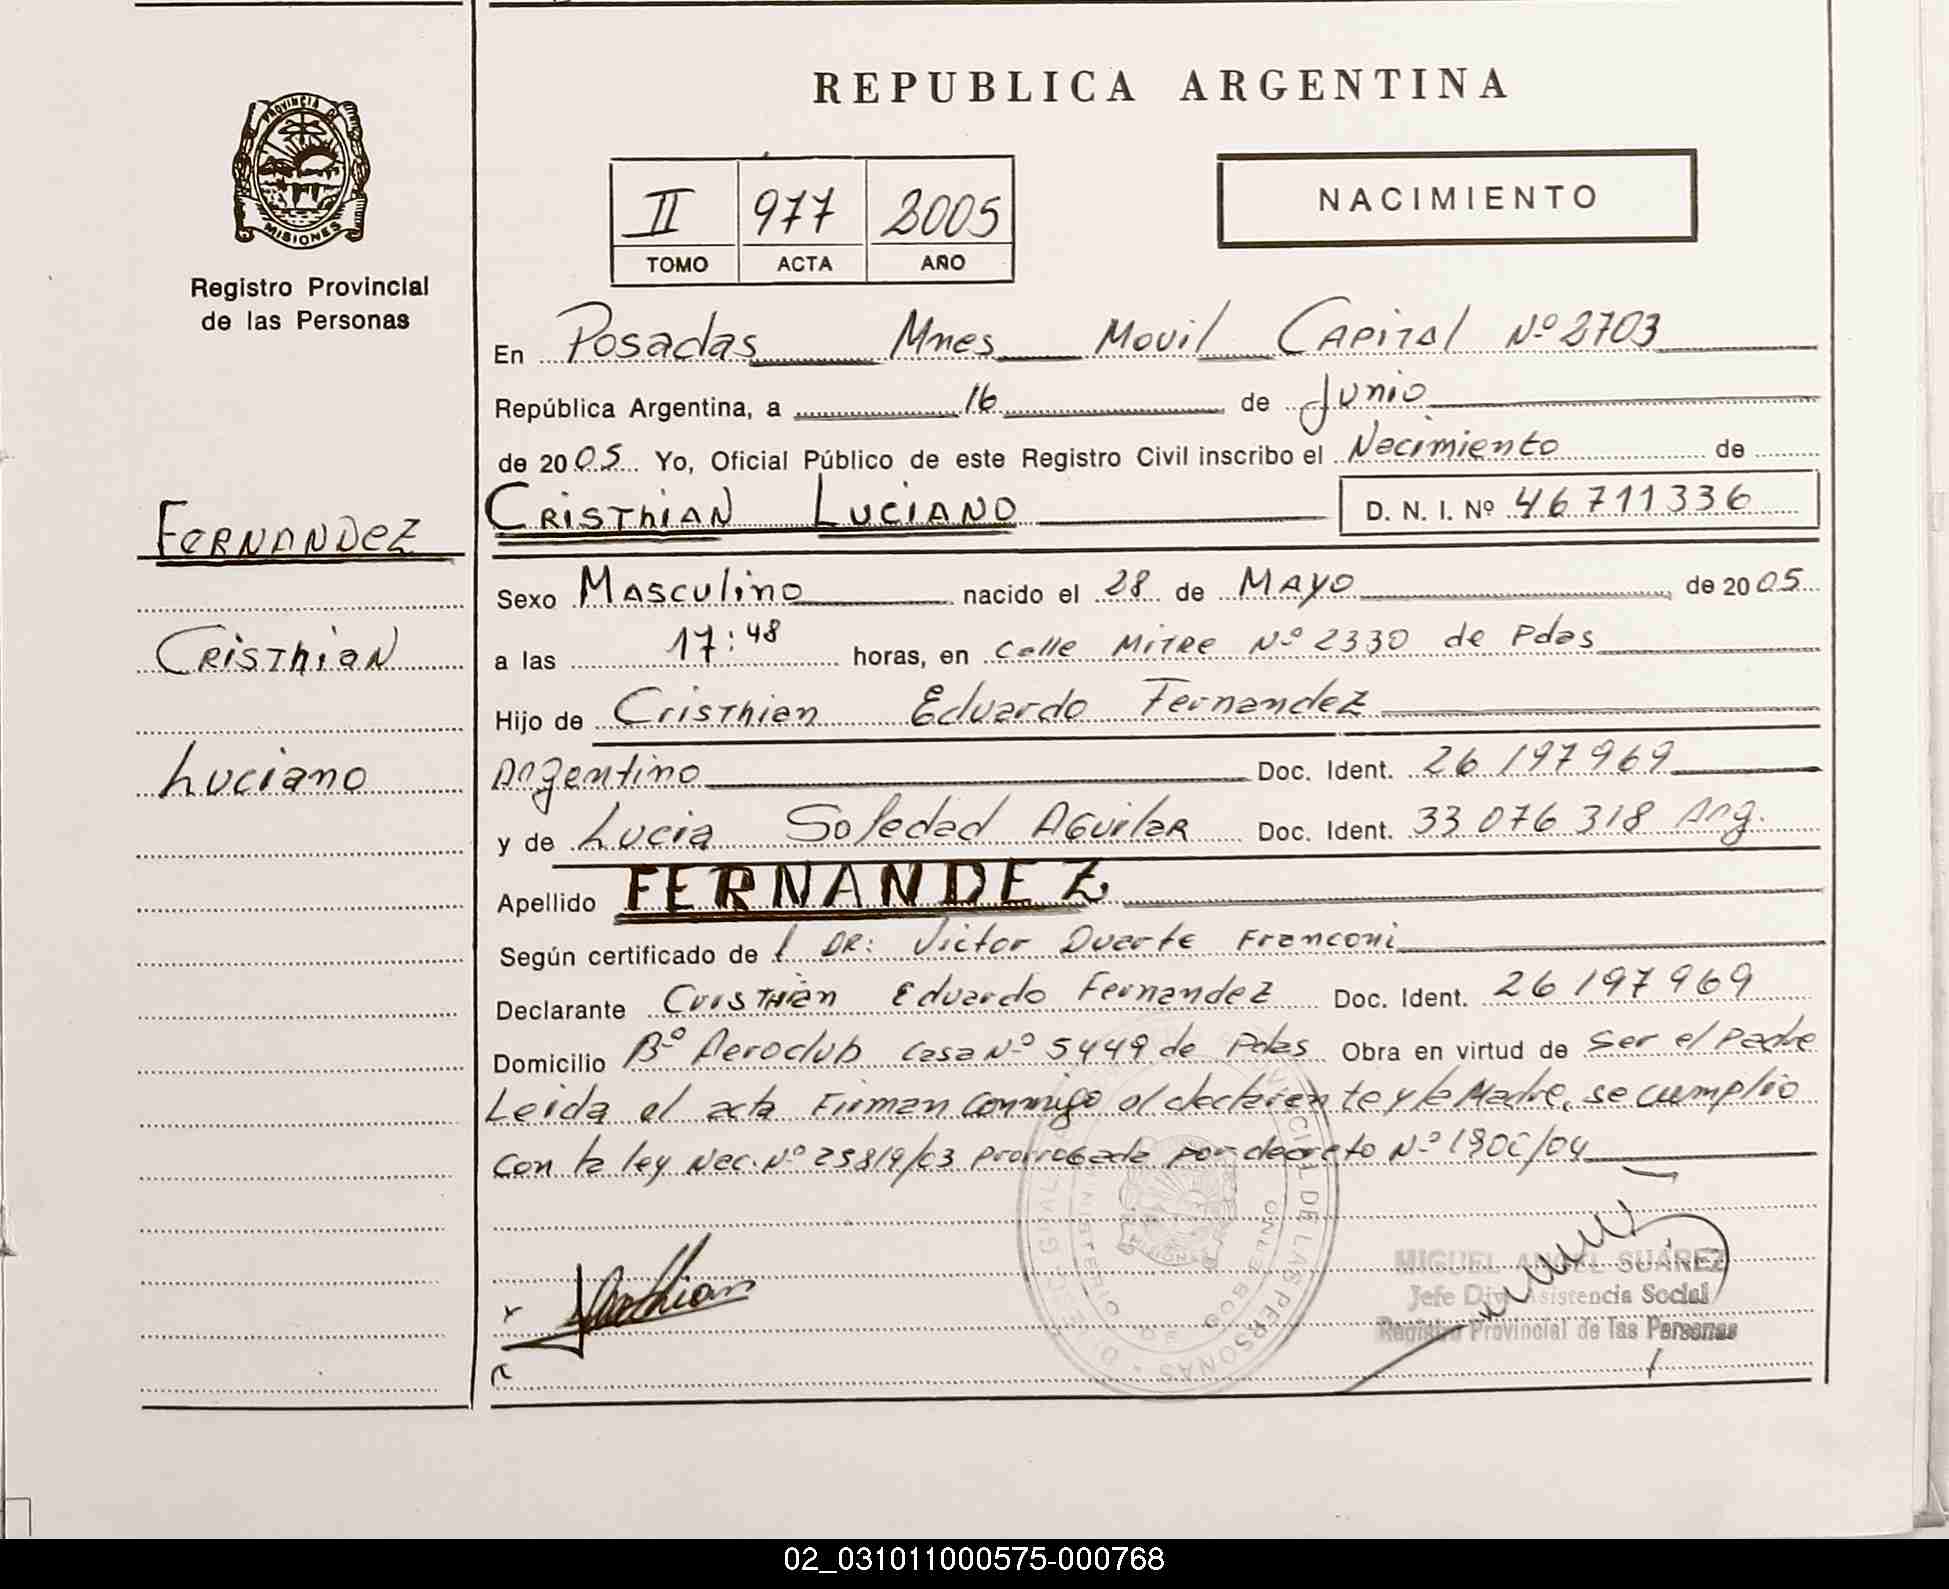 REPUBLICA ARGENTINA
PROVINCIA DE
MISIONES
Registro Provincial
de las Personas
II 977 2005
TOMO ACTA AÑO
NACIMIENTO
En Posadas Mnes Movil Capital Nº 2703
República Argentina, a 16 de Junio
de 2005 Yo, Oficial Público de este Registro Civil inscribo el Nacimiento de
FERNANDEZ
CRISTHIAN LUCIANO D. N. I. Nº 46711336
Sexo Masculino nacido el 28 de MAYO de 2005
Cristhian
a las 17:48 horas, en calle Mitre Nº 2330 de Pdas
Hijo de Cristhian Eduardo Fernandez
Luciano
Argentino Doc. Ident. 26 197 969
y de Lucia Soledad Aguilar Doc. Ident. 33 076 318 Arg.
Apellido FERNANDEZ
Según certificado de l DR: Victor Duarte Franconi
Declarante Cristhian Eduardo Fernandez Doc. Ident. 26 197 969
Domicilio Bº Aeroclub casa Nº 5449 de Pdas Obra en virtud de ser el Padre
Leida el acta Firman conmigo el declarante y la Madre, se cumplio
con la ley Nac. Nº 25819/03 prorrogada por decreto Nº 180 /04
MIGUEL ANGEL SUÁREZ
Jefe Div. Asistencia Social
Registro Provincial de las Personas
02_031011000575-000768